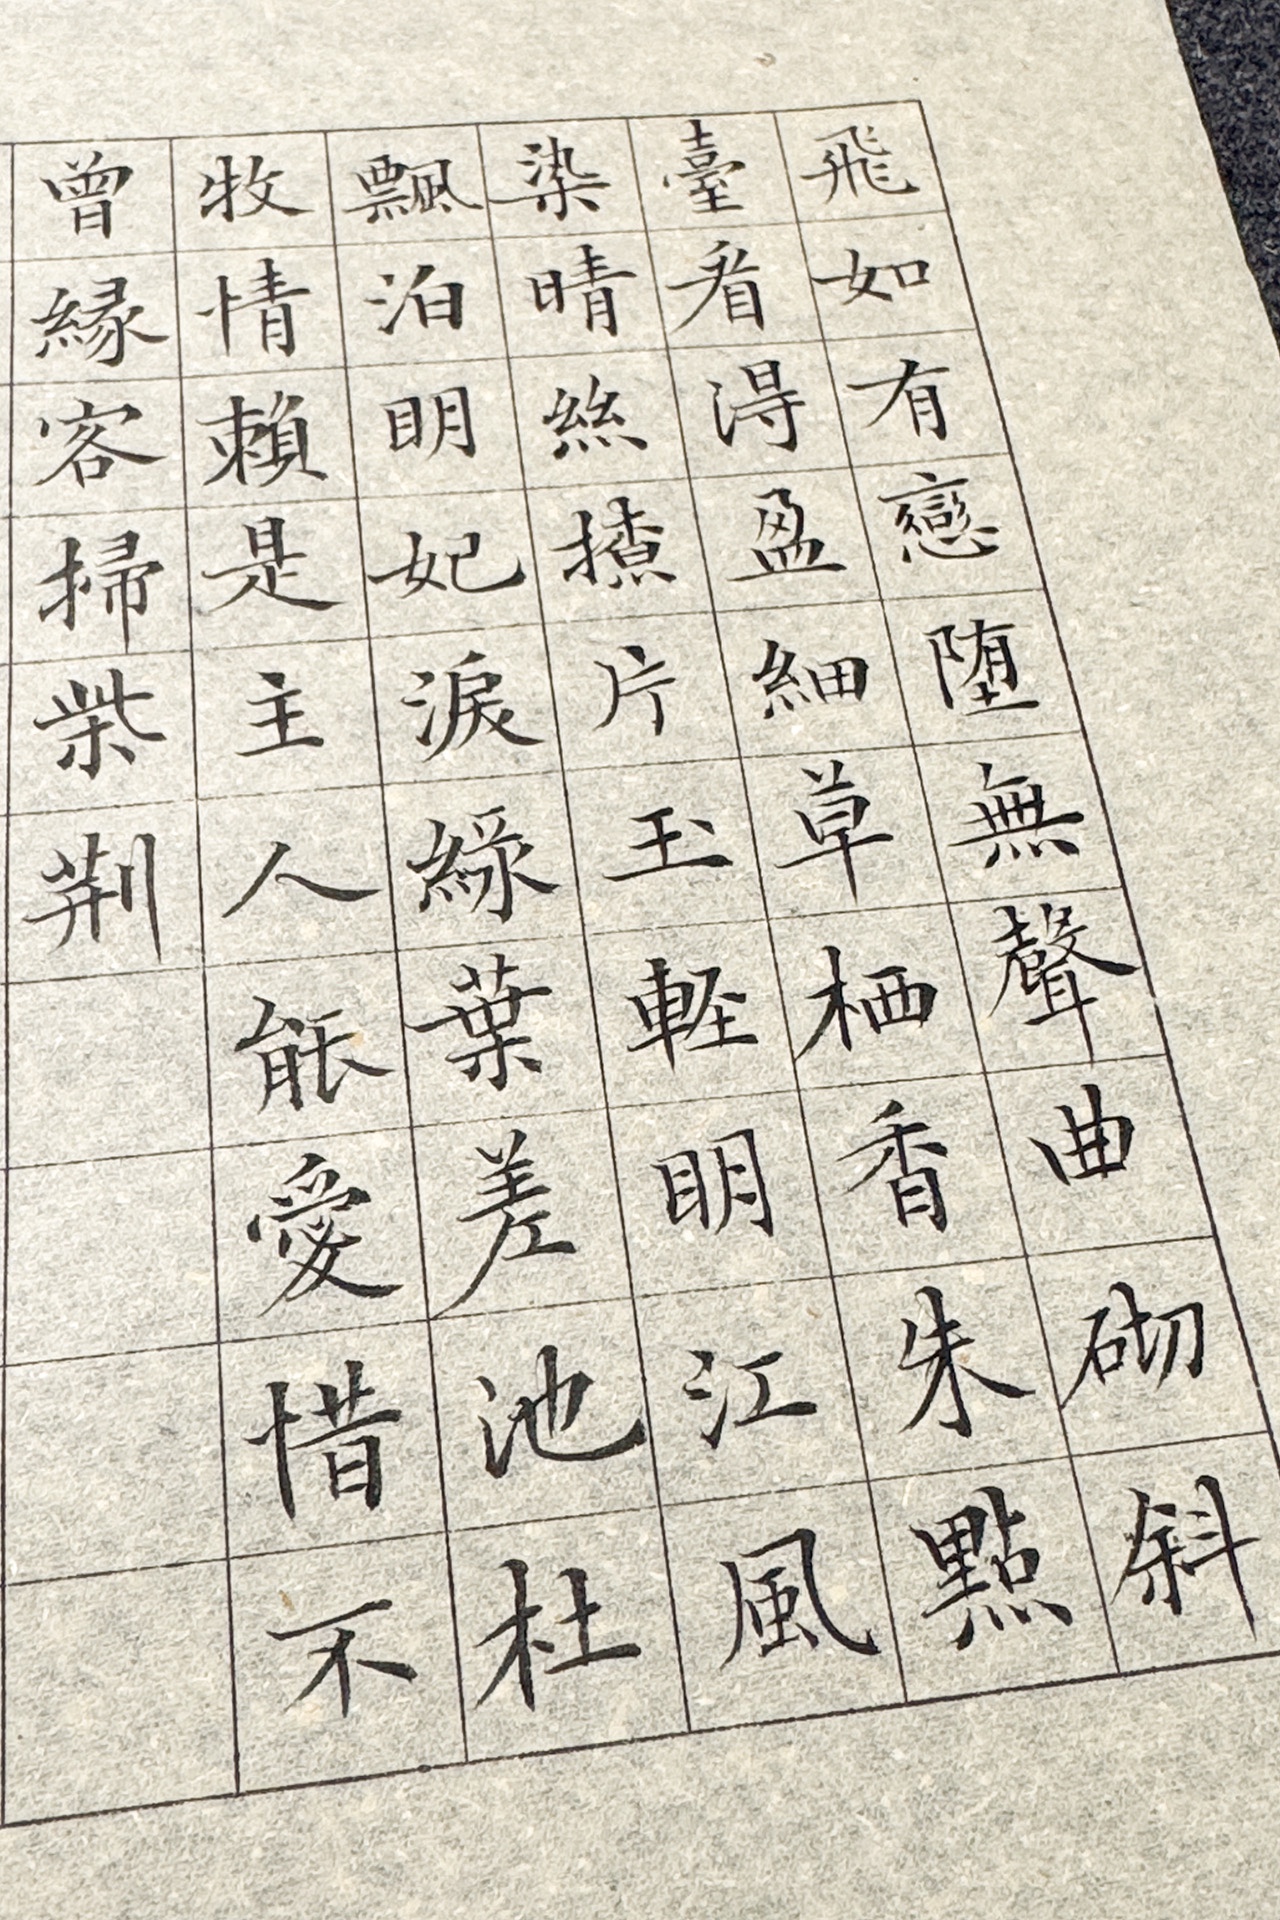 飛如有戀堕無聲曲砌斜
臺看得盈細草栖香朱點
染晴絲撩片玉輕明江風
飄泊明妃淚緑葉差池杜
牧情賴是主人能愛惜不
曾緣客掃柴荆